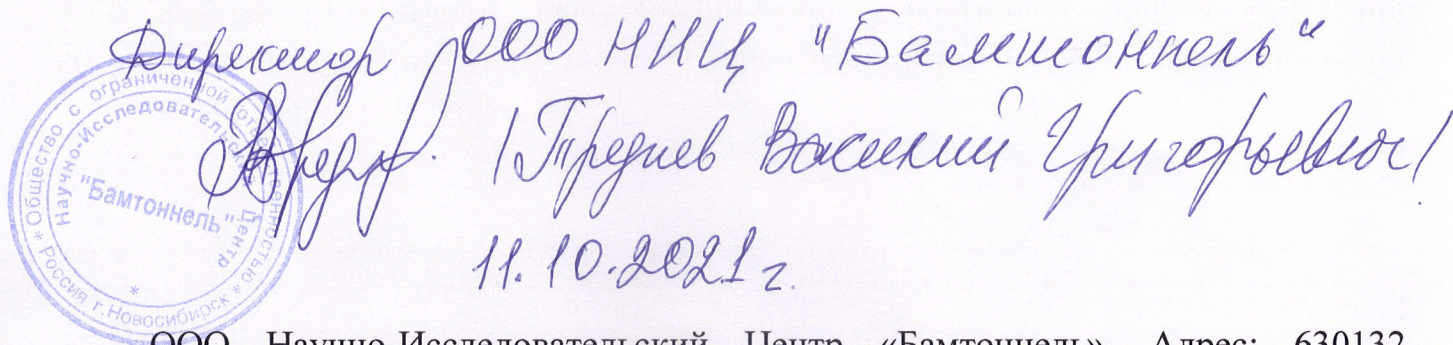 Директор ООО НИЦ "Бамтоннель"
/Треднев Василий Григорьевич/
11.10.2021 г.
Общество с ограниченной ответственностью * Россия г.Новосибирск *
Научно-Исследовательский Центр *
"Бамтоннель"
ООО Научно-Исследовательский Центр «Бамтоннель». Адрес: 630132,